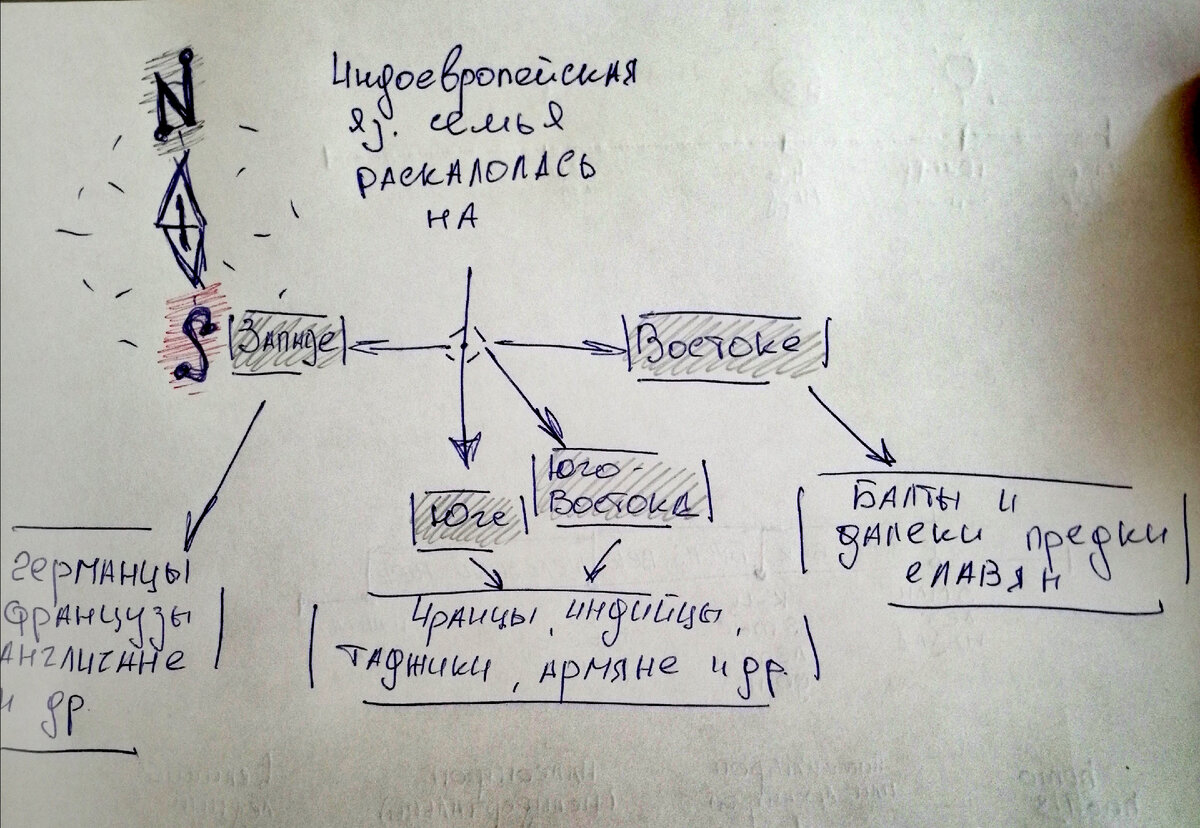 N
S
Индоевропейская
яз. семья
раскалолась
на
Западе
Востоке
Юге
Юго-
Востока
Германцы
Французы
Англичане
и др.
Ираицы, индийцы,
таджики, армяне и др.
Балты и
далеки предки
славян